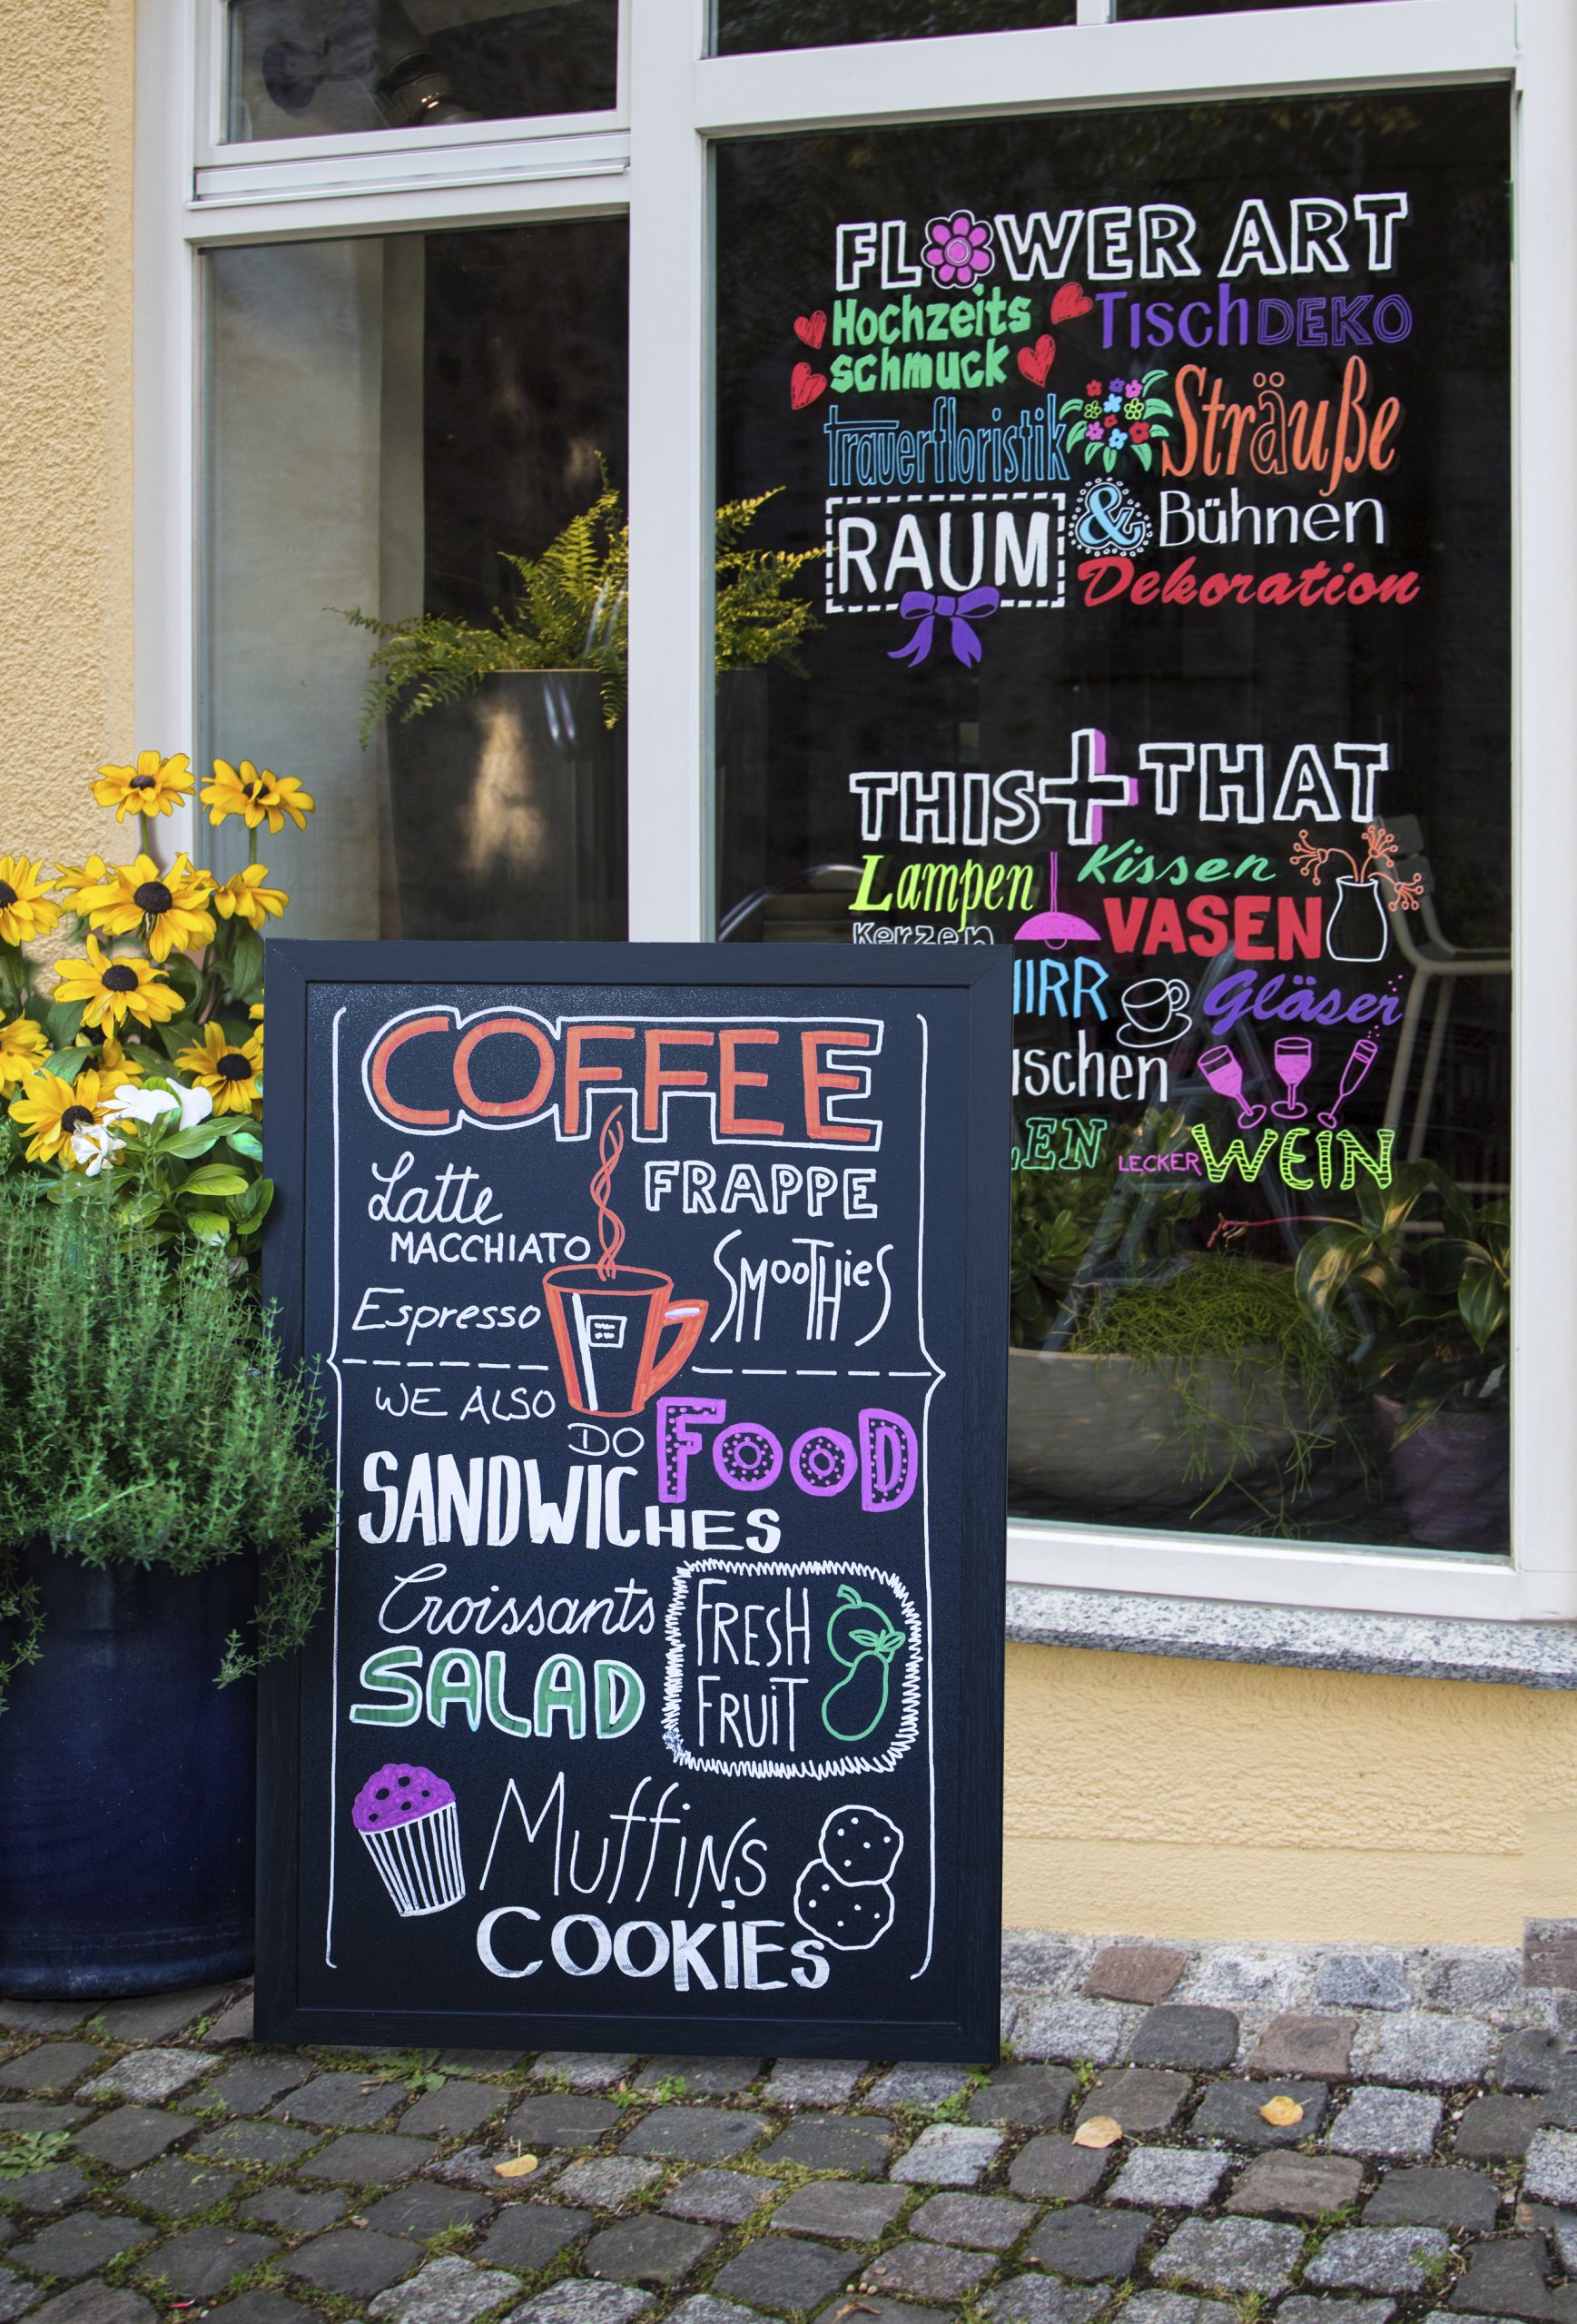 FLOWER ART
Hochzeits
schmuck
TischDEKO
trauerfloristik
Sträuße
RAUM & Bühnen
Dekoration
THIS + THAT
Lampen
Kissen
Kerzen
VASEN
Gläser
LECKER WEIN
COFFEE
Latte
MACCHIATO
FRAPPE
Espresso
SMOOTHieS
WE ALSO
DO FOOD
SANDWICHES
Croissants
SALAD
FRESH
FRUiT
MuffiNs
COOKiEs